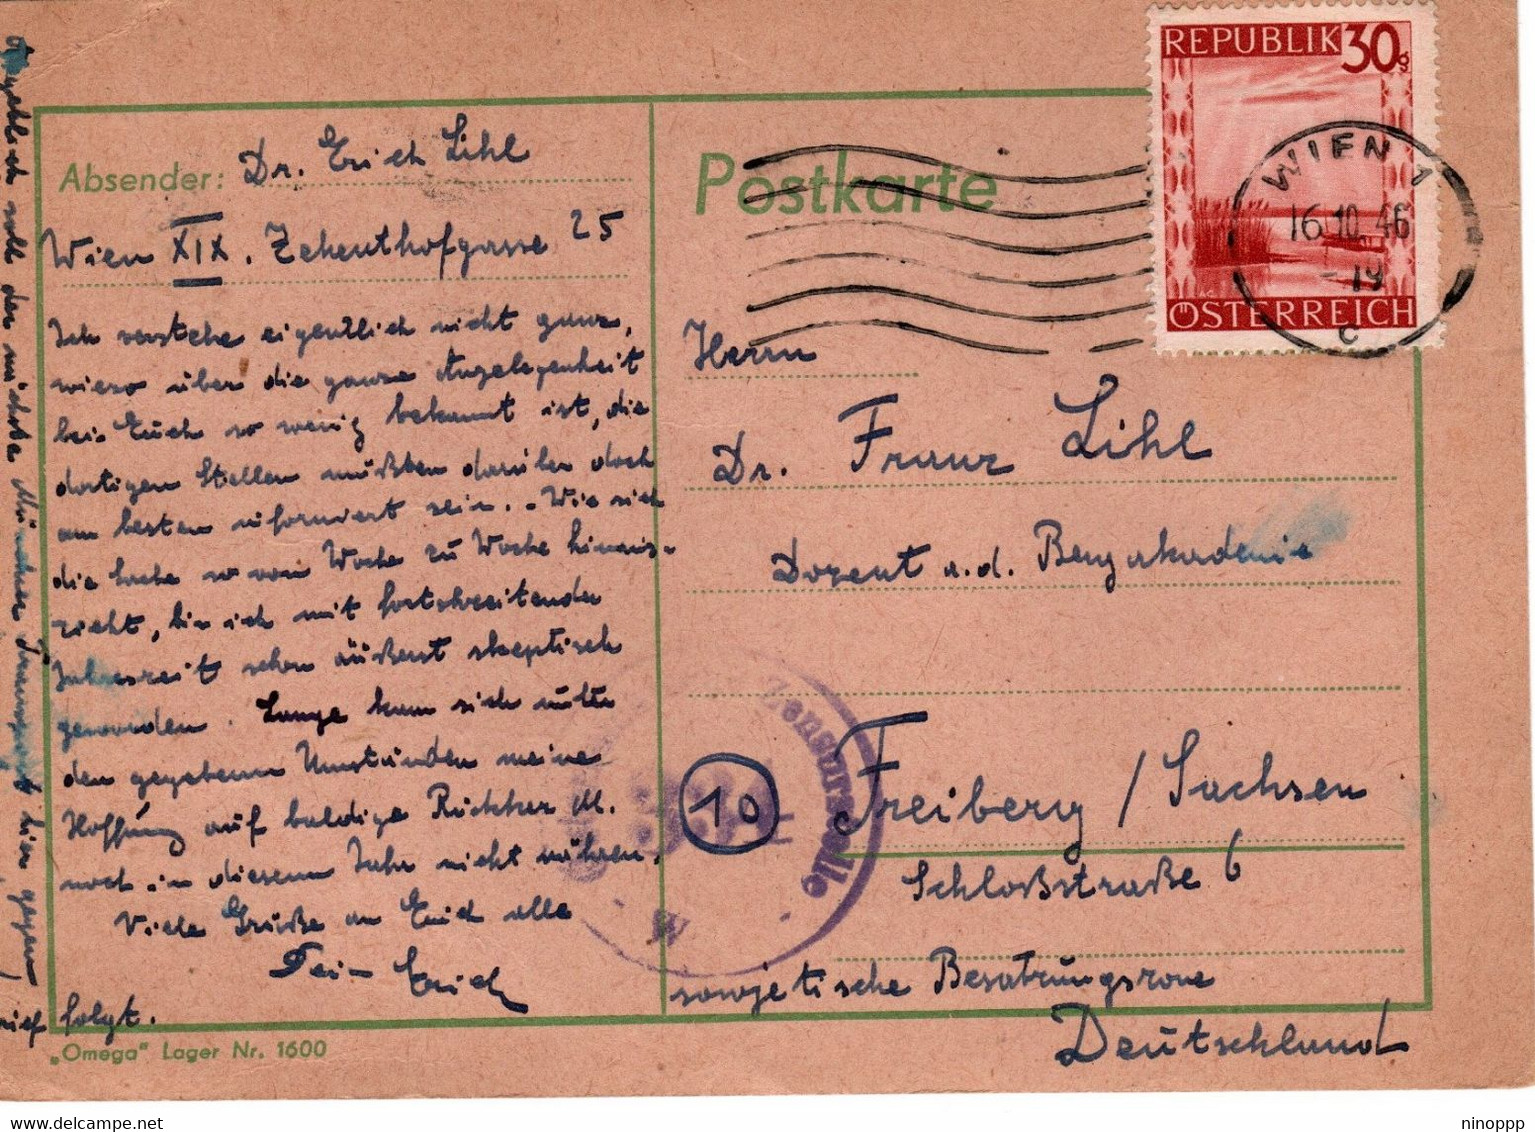 REPUBLIK 30g
ÖSTERREICH
WIEN 1
16.10.46 - 19
c
Postkarte
Absender: Dr. Erich Lihl
Wien XIX. Zehenthofgasse 25
Ich verstehe eigentlich nicht ganz,
wieso über die ganze Angelegenheit
bei Euch so wenig bekannt ist, die
dortigen Stellen müßten darüber doch
am besten informiert sein. - Wie sich
die Sache so von Woche zu Woche hinaus-
zieht, bin ich mit fortschreitender
Jahreszeit schon äußerst skeptisch
geworden. Lange kann sich unter
den gegebenen Umständen meine
Hoffnung auf baldige Rückkehr M.
noch in diesem Jahr nicht nähren.
Viele Grüße an Euch alle
Dein Erich
Angeblich soll der nächste Münchner Transport hier gegen
folgt.
Herrn
Dr. Franz Lihl
Dozent a.d. Bergakademie
10 Freiberg / Sachsen
Schloßstraße 6
sowjetische Besatzungszone
Deutschland
Zensurstelle
„Omega“ Lager Nr. 1600
ninoppp